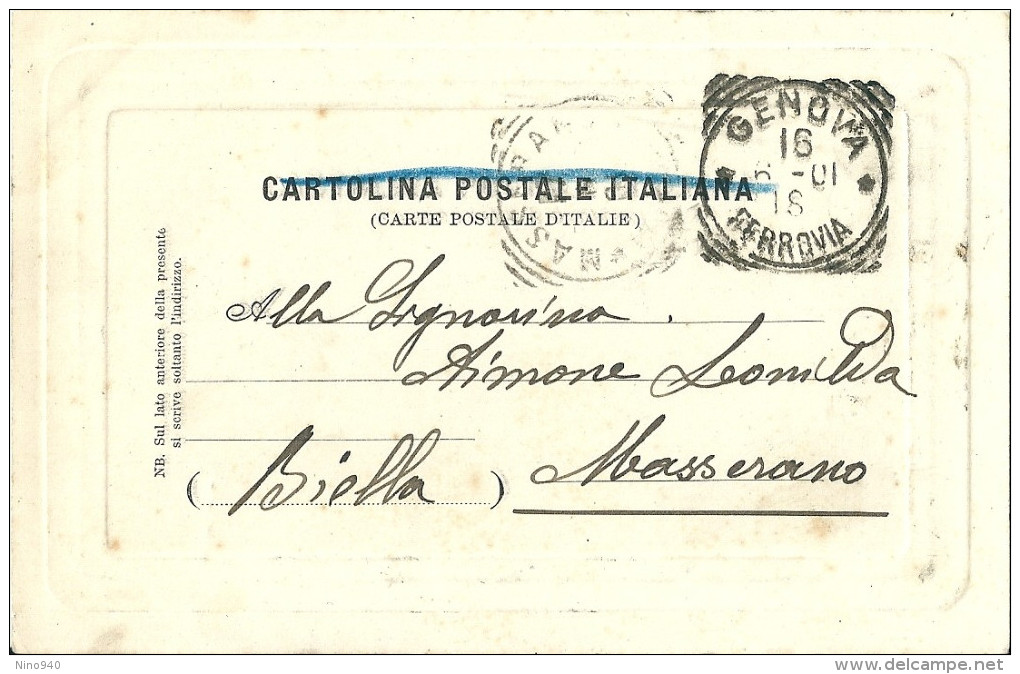 GENOVA
16
6 - 01
18
FERROVIA
CARTOLINA POSTALE ITALIANA
(CARTE POSTALE D'ITALIE)
NB. Sul lato anteriore della presente
si scrive soltanto l'indirizzo.
Alla Signorina
Aimone Leonilda
Masserano
( Biella )
Nino940
delcampe.net